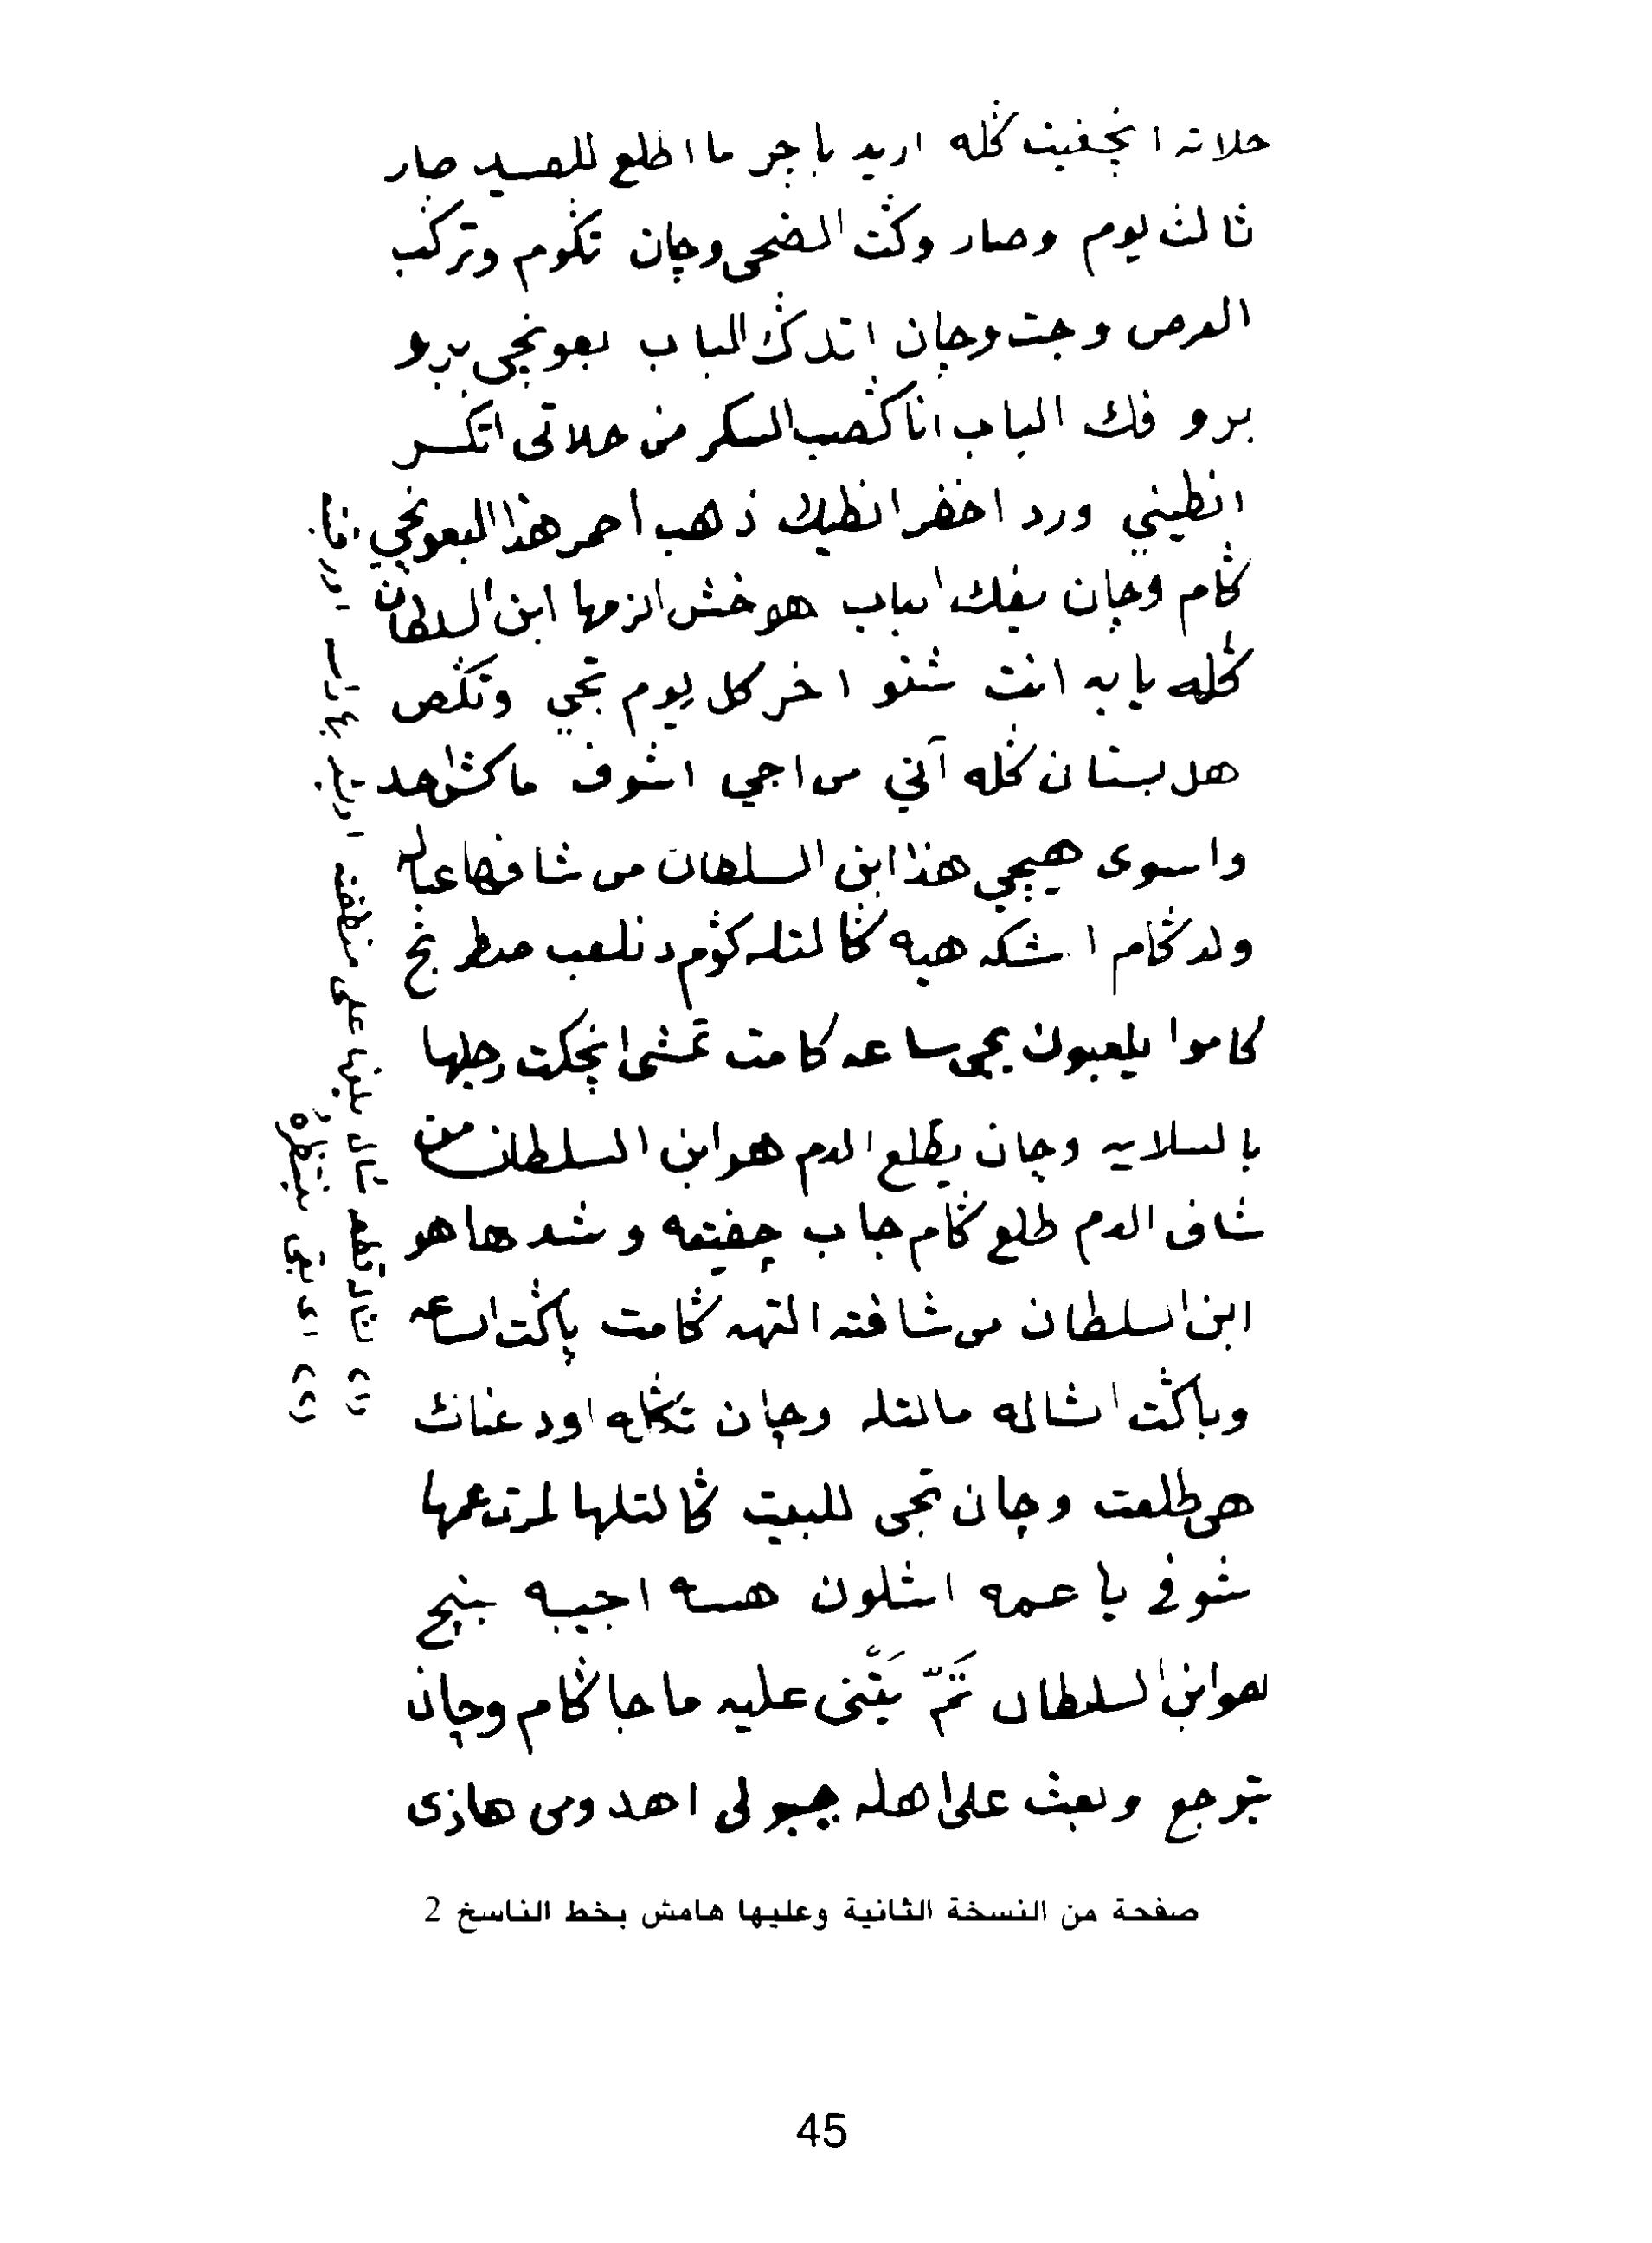 حلاته انچفيت گله اريد باچر ما اطلع للصيد صار
ثالث يوم وصار وگت الضحى وچان تگوم وتركب
الفرس وجت وچان اتدگ الباب بعونچي برو
برو فك الباب انا گصب السكر من حلاتى اتكسر
انطيني ورد اخضر انطيك ذهب احمر هذا البعونچي
گام وچان يفك الباب هو خش الزمها ابن السلطان
گله يا به انت شنو اخر كل يوم تجي وتگص
هل بستان گله آني من اجي اشوف ماكش احد
واسوى هيچي هذا ابن السلطان من شافها عباله
ولد گام اشكد هيه گالتله گوم دنلعب صطرنج
كاموا يلعبون يجى ساعه كامت تمشى انچكت رجلها
بالسلايه وچان يطلع الدم هو ابن السلطان من
شاف الدم طلع گام جاب چفيته وشدها هو
ابن السلطان من شافته التهه گامت باگت الساعه
وباگت الشاله مالتله وچان تگله اودعناك
هى طلعت وچان تجى للبيت گالتلها لمرة عمها
شوفي يا عمه اشلون هسه اجيبه بنچح
هو ابن السلطان تَمّ يَتَّنى عليه ما جا گام وچان
يرجع وبعث على اهله جيبولى اهدومى هاذى
صفحة من النسخة الثانية وعليها هامش بخط الناسخ 2
45